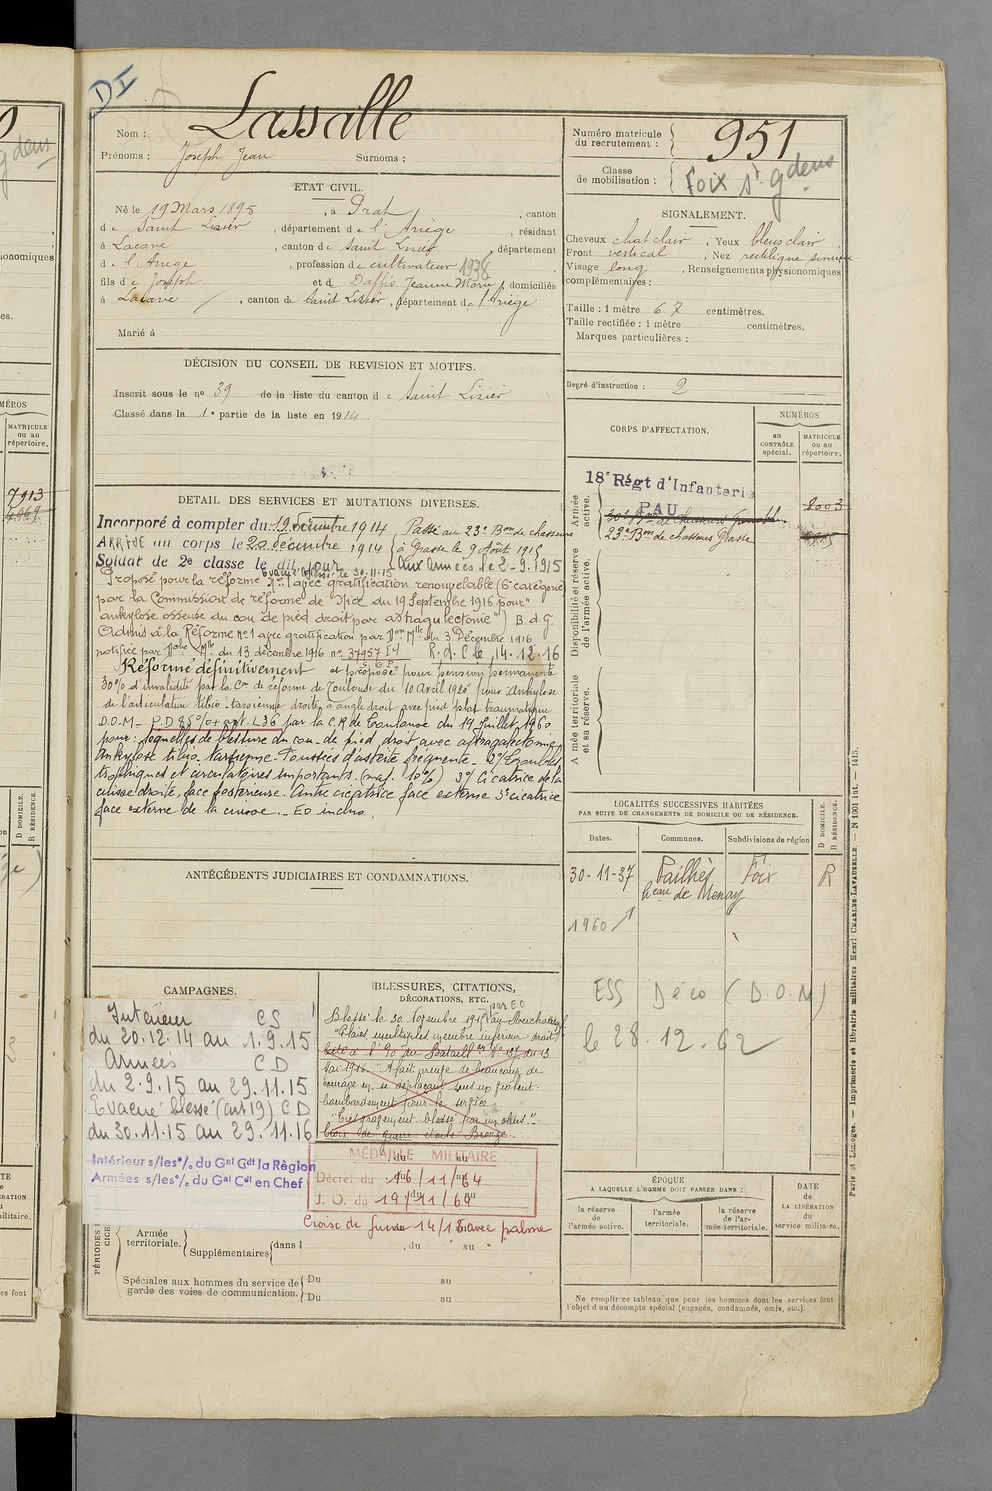 DI
Nom : Lassalle
Prénoms : Joseph Jean Surnoms :
Numéro matricule du recrutement : 951
Classe de mobilisation : Foix St Gdens
ETAT CIVIL.
Né le 19 Mars 1895, à Prat, canton
de Saint Lizier, département de l'Ariège, résidant
à Lacave, canton de Saint Lizier, département
de l'Ariège, profession de cultivateur 1938
fils de Joseph et de Daffis Jeanne Marie, domiciliés
à Lacave, canton de Saint Lizier, département de l'Ariège
Marié à
SIGNALEMENT.
Cheveux chat clair, Yeux bleus clair
Front vertical, Nez rectiligne sinueux
Visage long, Renseignements physionomiques
complémentaires :
Taille : 1 mètre 67 centimètres.
Taille rectifiée : 1 mètre centimètres.
Marques particulières :
Degré d'instruction : 2
DÉCISION DU CONSEIL DE REVISION ET MOTIFS.
Inscrit sous le no 39 de la liste du canton de Saint Lizier
Classé dans la 1e partie de la liste en 1914.
DETAIL DES SERVICES ET MUTATIONS DIVERSES.
Incorporé à compter du 19 décembre 1914
ARRIVÉ au corps le 20 décembre 1914
Soldat de 2e classe le dit jour
Passé au 23e Bon de chasseurs
à Grasse le 9 Août 1915
aux Armées le 2-9.1915
Evacué blessé le 30-11-15
Proposé pour la réforme No 1 avec gratification renouvelable (6e catégorie)
par la Commission de réforme de Nice du 19 Septembre 1916 pour "
ankylose osseuse du cou de pied droit par astragalectomie") B.d.G.
Admis à la Réforme no 1 avec gratification par Don Mlle du 3 Décembre 1916
notifiée par Mlle du 13 décembre 1916 no 37957 I4 R.d.C le 14-12-16
Réformé définitivement et proposé pour pension permanente
30% d'invalidité par la Con de réforme de Toulouse du 10 Avril 1920 pour : Ankylose
de l'articulation tibio-tarsienne droite à angle droit avec pied plat traumatique
D.O.M- P.D 85% + art. L36 par la C.R de Toulouse du 19 Juillet 1960
pour : séquelles de blessure du cou-de pied droit avec astragalectomie,
Ankylose tibio. tarsienne - Poussées d'ostéite fréquente - 2°/ troubles
trophiques et circulatoires importants. (maj. 10%) 3°/ Cicatrice de la
cuisse droite, face postérieure. Autre cicatrice face externe 3e cicatrice
face externe de la cuisse. - E0 inclus.
CORPS D'AFFECTATION.
NUMÉROS
au CONTRÔLE spécial.
MATRICULE ou au répertoire.
Armée active.
18e Régt d'Infanterie
PAU
8003
23e Bon de chasseurs Grasse
Disponibilité et réserve de l'armée active.
Armée territoriale et sa réserve.
LOCALITÉS SUCCESSIVES HABITÉES
PAR SUITE DE CHANGEMENTS DE DOMICILE OU DE RÉSIDENCE.
Dates. Communes. Subdivisions de région
D DOMICILE. R RÉSIDENCE.
30-11-37 Pailhès Foix R
heau de Menay
1960
ESS Déco (D.O.M)
le 28.12.62
ANTÉCÉDENTS JUDICIAIRES ET CONDAMNATIONS.
CAMPAGNES.
Intérieur CS
du 20.12.14 au 1.9.15
Armées CD
du 2.9.15 au 29.11.15
Evacué blessé (art 19) CD
du 30.11.15 au 29.11.16
Intérieur s/les o/. du Gal Gdt la Région
Armées s/les o/. du Gal Cdt en Chef
BLESSURES, CITATIONS,
DÉCORATIONS, ETC.
par EO
Blessé le 30 novembre 1915
"Plaies multiples membre inférieur droit"
Cité à l'O du Bataillon No 137 du 13
Mai 1916. "A fait preuve de beaucoup de
courage en se déplaçant sous un violent
bombardement pour le service.
"Très gravement blessé par un obus".
Croix de guerre étoile Bronze.
MÉDAILLE MILITAIRE
Décret du 16/11/64
J. O. du 19/11/64
Croix de Guerre 14/18 avec palme
Armée territoriale.
Supplémentaires dans l , du au
Spéciales aux hommes du service de garde des voies de communication.
Du au
Du au
ÉPOQUE
A LAQUELLE L'HOMME DOIT PASSER DANS :
la réserve de l'armée active.
l'armée territoriale.
la réserve de l'armée territoriale.
DATE de LA LIBÉRATION du service militaire.
Ne remplir ce tableau que pour les hommes dont les services font
l'objet d'un décompte spécial (engagés, condamnés, omis, etc.).
Paris et Limoges. — Imprimerie et librairie militaires Henri CHARLES-LAVAUZELLE. — N 1001 Int. — 1415.
MATRICULE ou au répertoire.
7913